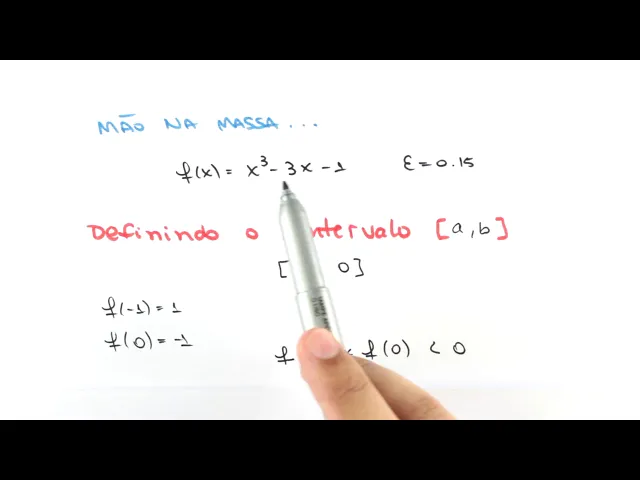 MÃO NA MASSA...
f(x) = x³ - 3x - 1 ε = 0.15
Definindo o intervalo [a,b]
[ 0]
f(-1) = 1
f(0) = -1
f f(0) < 0